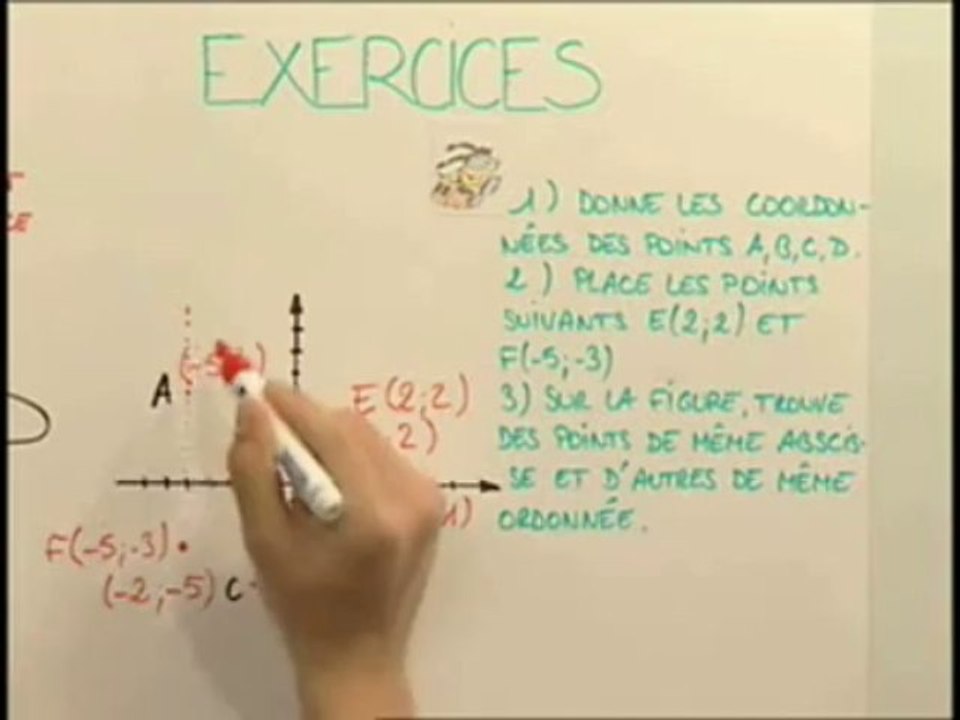 EXERCICES
1) DONNE LES COORDON-
NÉES DES POINTS A,B,C,D.
2) PLACE LES POINTS
SUIVANTS E(2;2) ET
F(-5;-3)
3) SUR LA FIGURE, TROUVE
DES POINTS DE MÊME ABSCIS-
SE ET D'AUTRES DE MÊME
ORDONNÉE.
A
E(2;2)
F(-5;-3)
(-2;-5) C